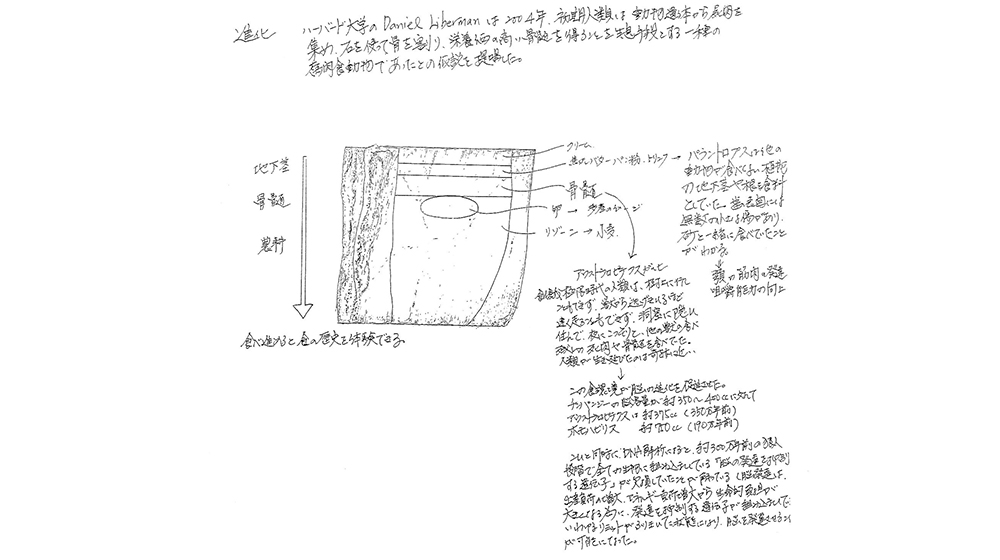 進化
ハーバード大学の Daniel Liberman は 2004年、初期人類は動物遺体から屍肉を
集め、石を使って骨を割り、栄養価の高い骨髄を得ることを生息手段とする一種の
屍肉食動物であったとの仮説を提唱した。
地下茎
骨髄
農耕
食べ進めると食の歴史を体験できる。
クリーム
バター パン粉、ナッツ →
骨髄
卵 →
リゾーニ → 小麦
パラントロプスは他の
動物が食べない
地下茎や根を食料
としていた。歯の表面には
無数の 傷があり、
砂と一緒に食べていたこと
がわかる。
↓
顎の筋肉の発達
咀嚼能力の向上
アウストラロピテクス
時代の人類は、樹上に
こともできず、 逃げきれるほど
速く走ることもできず、洞窟に隠れ
住んで、夜にこっそりと、他の獣の食べ
残しの 肉や骨髄を食べてた。
人類が生き延びたのは奇跡に近い
↓
この食環境が脳の進化を促進させた。
チンパンジーの脳容量が約350〜400ccに対して
アウストラロピテクスは 約375cc (350万年前)
ホモハビリス 約750cc (190万年前)
これと同時に、DNA解析によると、約300万年前の
全ての 組み込まれている「脳の発達を抑制
する遺伝子」が欠損していたことが解っている (脳の発達は、
増大、エネルギー 増大から生命的負担が
大きくなる為に、発達を抑制する遺伝子が組み込まれていて、
いわゆるリミットが 状態になり、脳を発達させること
が可能になった。